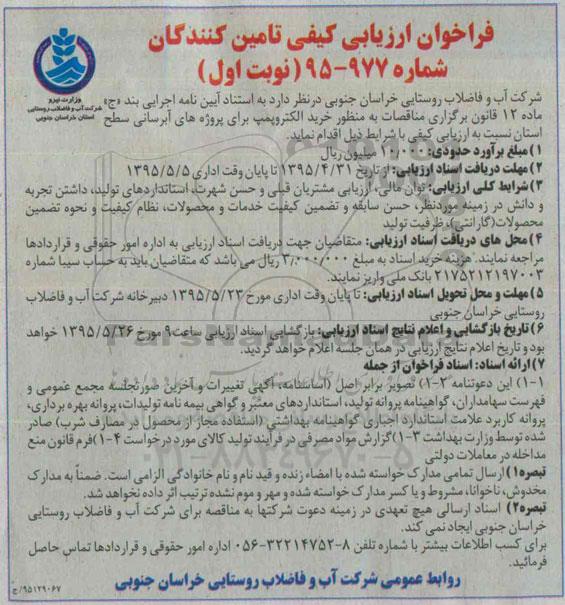 فراخوان ارزیابی کیفی تامین کنندگان
شماره ۹۷۷-۹۵ (نوبت اول)
وزارت نیرو
شرکت آب و فاضلاب روستایی
استان خراسان جنوبی
شرکت آب و فاضلاب روستایی خراسان جنوبی درنظر دارد به استناد آیین نامه اجرایی بند «ج»
ماده ۱۲ قانون برگزاری مناقصات به منظور خرید الکتروپمپ برای پروژه های آبرسانی سطح
استان نسبت به ارزیابی کیفی با شرایط ذیل اقدام نماید.
۱) مبلغ برآورد حدودی: ۱۰،۰۰۰ میلیون ریال
۲) مهلت دریافت اسناد ارزیابی: از تاریخ ۱۳۹۵/۴/۳۱ تا پایان وقت اداری ۱۳۹۵/۵/۵
۳) شرایط کلی ارزیابی: توان مالی، ارزیابی مشتریان قبلی و حسن شهرت، استانداردهای تولید، داشتن تجربه
و دانش در زمینه موردنظر، حسن سابقه و تضمین کیفیت خدمات و محصولات، نظام کیفیت و نحوه تضمین
محصولات(گارانتی)، ظرفیت تولید
۴) محل های دریافت اسناد ارزیابی: متقاضیان جهت دریافت اسناد ارزیابی به اداره امور حقوقی و قراردادها
مراجعه نمایند. هزینه خرید اسناد به مبلغ ۳/۰۰۰/۰۰۰ ریال می باشد که متقاضیان باید به حساب سیبا شماره
۲۱۷۵۲۱۲۱۹۷۰۰۳ بانک ملی واریز نمایند.
۵) مهلت و محل تحویل اسناد ارزیابی: تا پایان وقت اداری مورخ ۱۳۹۵/۵/۲۳ دبیرخانه شرکت آب و فاضلاب
روستایی خراسان جنوبی
۶) تاریخ بازگشایی و اعلام نتایج اسناد ارزیابی: بازگشایی اسناد ارزیابی ساعت ۹ مورخ ۱۳۹۵/۵/۲۶ خواهد
بود و تاریخ اعلام نتایج ارزیابی در همان جلسه اعلام خواهد گردید.
۷) ارائه اسناد: اسناد فراخوان از جمله
۱-۱) این دعوتنامه ۲-۱) تصویر برابر اصل (اساسنامه، آگهی تغییرات و آخرین صورتجلسه مجمع عمومی و
فهرست سهامداران، گواهینامه پروانه تولید، استانداردهای معتبر و گواهی بیمه نامه تولیدات، پروانه بهره برداری،
پروانه کاربرد علامت استاندارد اجباری گواهینامه بهداشتی (استفاده مجاز از محصول در مصارف شرب) صادر
شده توسط وزارت بهداشت ۳-۱) گزارش مواد مصرفی در فرآیند تولید کالای مورد درخواست ۴-۱) فرم قانون منع
مداخله در معاملات دولتی
تبصره۱) ارسال تمامی مدارک خواسته شده با امضاء زنده و قید نام و نام خانوادگی الزامی است. ضمناً به مدارک
مخدوش، ناخوانا، مشروط و یا کسر مدارک خواسته شده و مهر و موم نشده ترتیب اثر داده نخواهد شد.
تبصره۲) اسناد ارسالی هیچ تعهدی در زمینه دعوت شرکتها به مناقصه برای شرکت آب و فاضلاب روستایی
خراسان جنوبی ایجاد نمی کند.
برای کسب اطلاعات بیشتر با شماره تلفن ۸-۳۲۲۱۴۷۵۲-۰۵۶ اداره امور حقوقی و قراردادها تماس حاصل
فرمائید.
روابط عمومی شرکت آب و فاضلاب روستایی خراسان جنوبی
۹۵۱۲۹۰۶۷/ج
ParsNamadData
۰۲۱-۸۸۳۴۹۶۷۰-۵